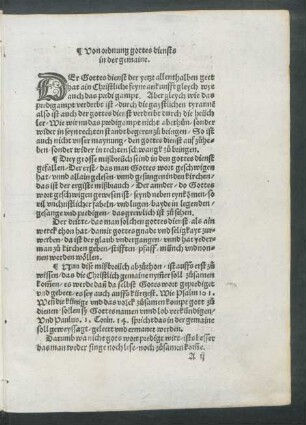 ¶ Von ordnung gottes diensts
in der gemaine.
DEr Gottes dienst der yetzt allenthalben geet
hat ain Christliche feyne ankunfft gleych wye
auch das predigampt. Aber gleych wie das
predigampt verderbt ist durch die gaystlichen tyrannē
also ist auch der gottes dienst verderbt durch die heüch
ler. Wie wir nun das predigampt nicht abethün sonder
wider in seyn rechten standt begeren zů bringen. So ist
auch nicht vnser maynung den gottes dienst auf zůhe
ben sonder wider in rechten schwangk zů bringen.
¶ Drey grosse mißbreüch seind in den gottes dienst
gefallen. Der erst das man Gottes wort geschwigen
hat vnd allain gelesen vnd gesungen in den kirchen
das ist der ergiste mißbrauch. Der annder do Gottes
wort geschwigen gewesen ist seynd neben eynkōmen so
vil vnchristlicher fabeln vnd lugen bayde in legenden
gesange vnd predigen das grewlich ist zů sehen.
Der dritte das man solchen gottes dienst als ain
werck thon hat damit gottes gnade vnd seligkayt zuer
werben da ist der glaub vndergangen vnd hat yeder
man zů kirchen geben stifften pfaff münch vnd nonn
en werden wöllen.
¶ Nun dise mißbreüch abzůthon ist auffs erst zů
wissen das die Christlich gemaine nymer soll zůsamen
kom̄en es werde dan̄ da selbst Gottes wort geprediget
vnd gebett es sey auch auffs kürtzist. Wie Psalm 101.
Wen die künige vnd das volck zůsamen kompt gott zů
dienen sollen sy Gottes namen vnd lob verkündigen
Vnd Paulus. 1. Corin. 14. spricht das in der gemaine
soll geweyssagt geleert vnd ermanet werden.
Darumb wa nicht gots wort predigt wirt ists besser
das man weder singe noch lese noch zůsamen kom̄e.
A ij